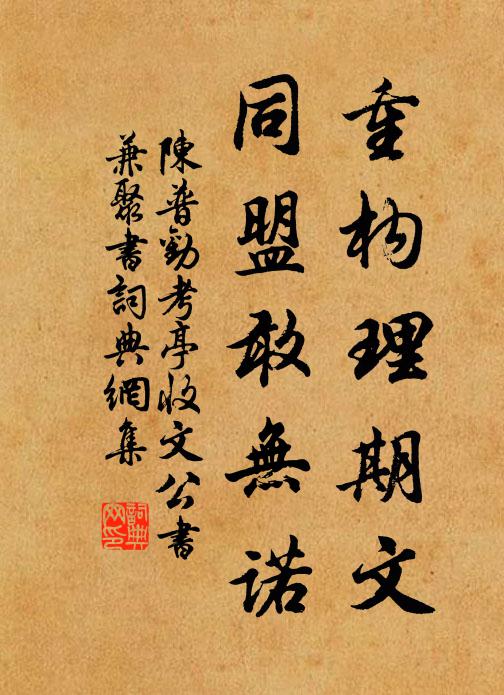 重构理期文
同盟敢無諾
陳普勸考亭收文公書
兼聚書詞典網集
詞典网印